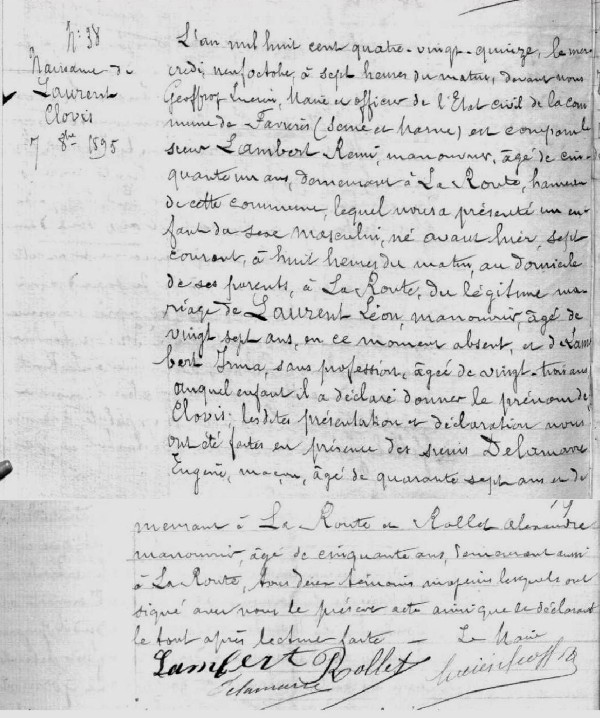 N: 38
Naissance de
Laurent
Clovis
7 8bre 1895
L'an mil huit cent quatre-vingt-quinze, le mer
credi neuf octobre, à sept heures du matin, devant nous
Geoffroy Lucien, Maire et officier de l'Etat civil de la com
mune de Favières (Seine et Marne) est comparu le
sieur Lambert Remi, manouvrier, âgé de cin
quante un ans, demeurant à La Route, hameau
de cette commune, lequel nous a présenté un en
fant du sexe masculin, né avant hier, sept
courant, à huit heures du matin, au domicile
de ses parents, à La Route, du légitime ma
riage de Laurent Léon, manouvrier, âgé de
vingt sept ans, en ce moment absent, et de Lam
bert Irma, sans profession, âgée de vingt-trois ans
auquel enfant il a déclaré donner le prénom de
Clovis. lesdites présentation et déclaration nous
ont été faites en présence des sieurs Delamarre
Eugène, maçon, âgé de quarante sept ans et de
meurant à La Route et Rollet Alexandre
manouvrier, âgé de cinquante ans, demeurant aussi
à La Route, tous deux témoins majeurs lesquels ont
signé avec nous le présent acte ainsi que le déclarant
le tout après lecture faite — Le Maire
Lambert Rollet
Delamarre